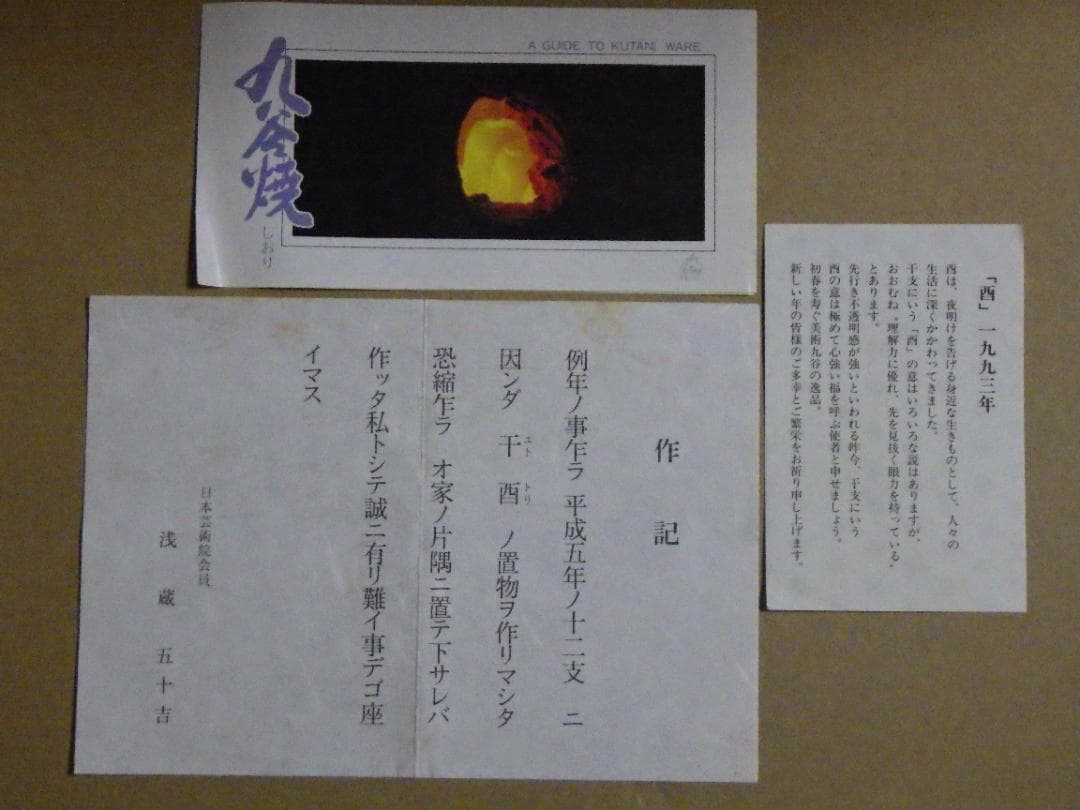 A GUIDE TO KUTANI WARE
九谷焼
しおり
「酉」一九九三年
酉は、夜明けを告げる身近な生きものとして、人々の
生活に深くかかわってきました。
干支にいう「酉」の意はいろいろな説はありますが、
おおむね〝理解力に優れ、先を見抜く眼力を持っている〟
とあります。
先行き不透明感が強いといわれる昨今、干支にいう
酉の意は極めて心強い福を呼ぶ使者と申せましょう。
初春を寿ぐ美術九谷の逸品。
新しい年の皆様のご多幸とご繁栄をお祈り申し上げます。
作記
例年ノ事乍ラ 平成五年ノ十二支 ニ
因ンダ 干エト 酉トリ ノ置物ヲ作リマシタ
恐縮乍ラ オ家ノ片隅ニ置テ下サレバ
作ッタ私トシテ誠ニ有リ難イ事デゴ座
イマス
日本芸術院会員
浅蔵五十吉